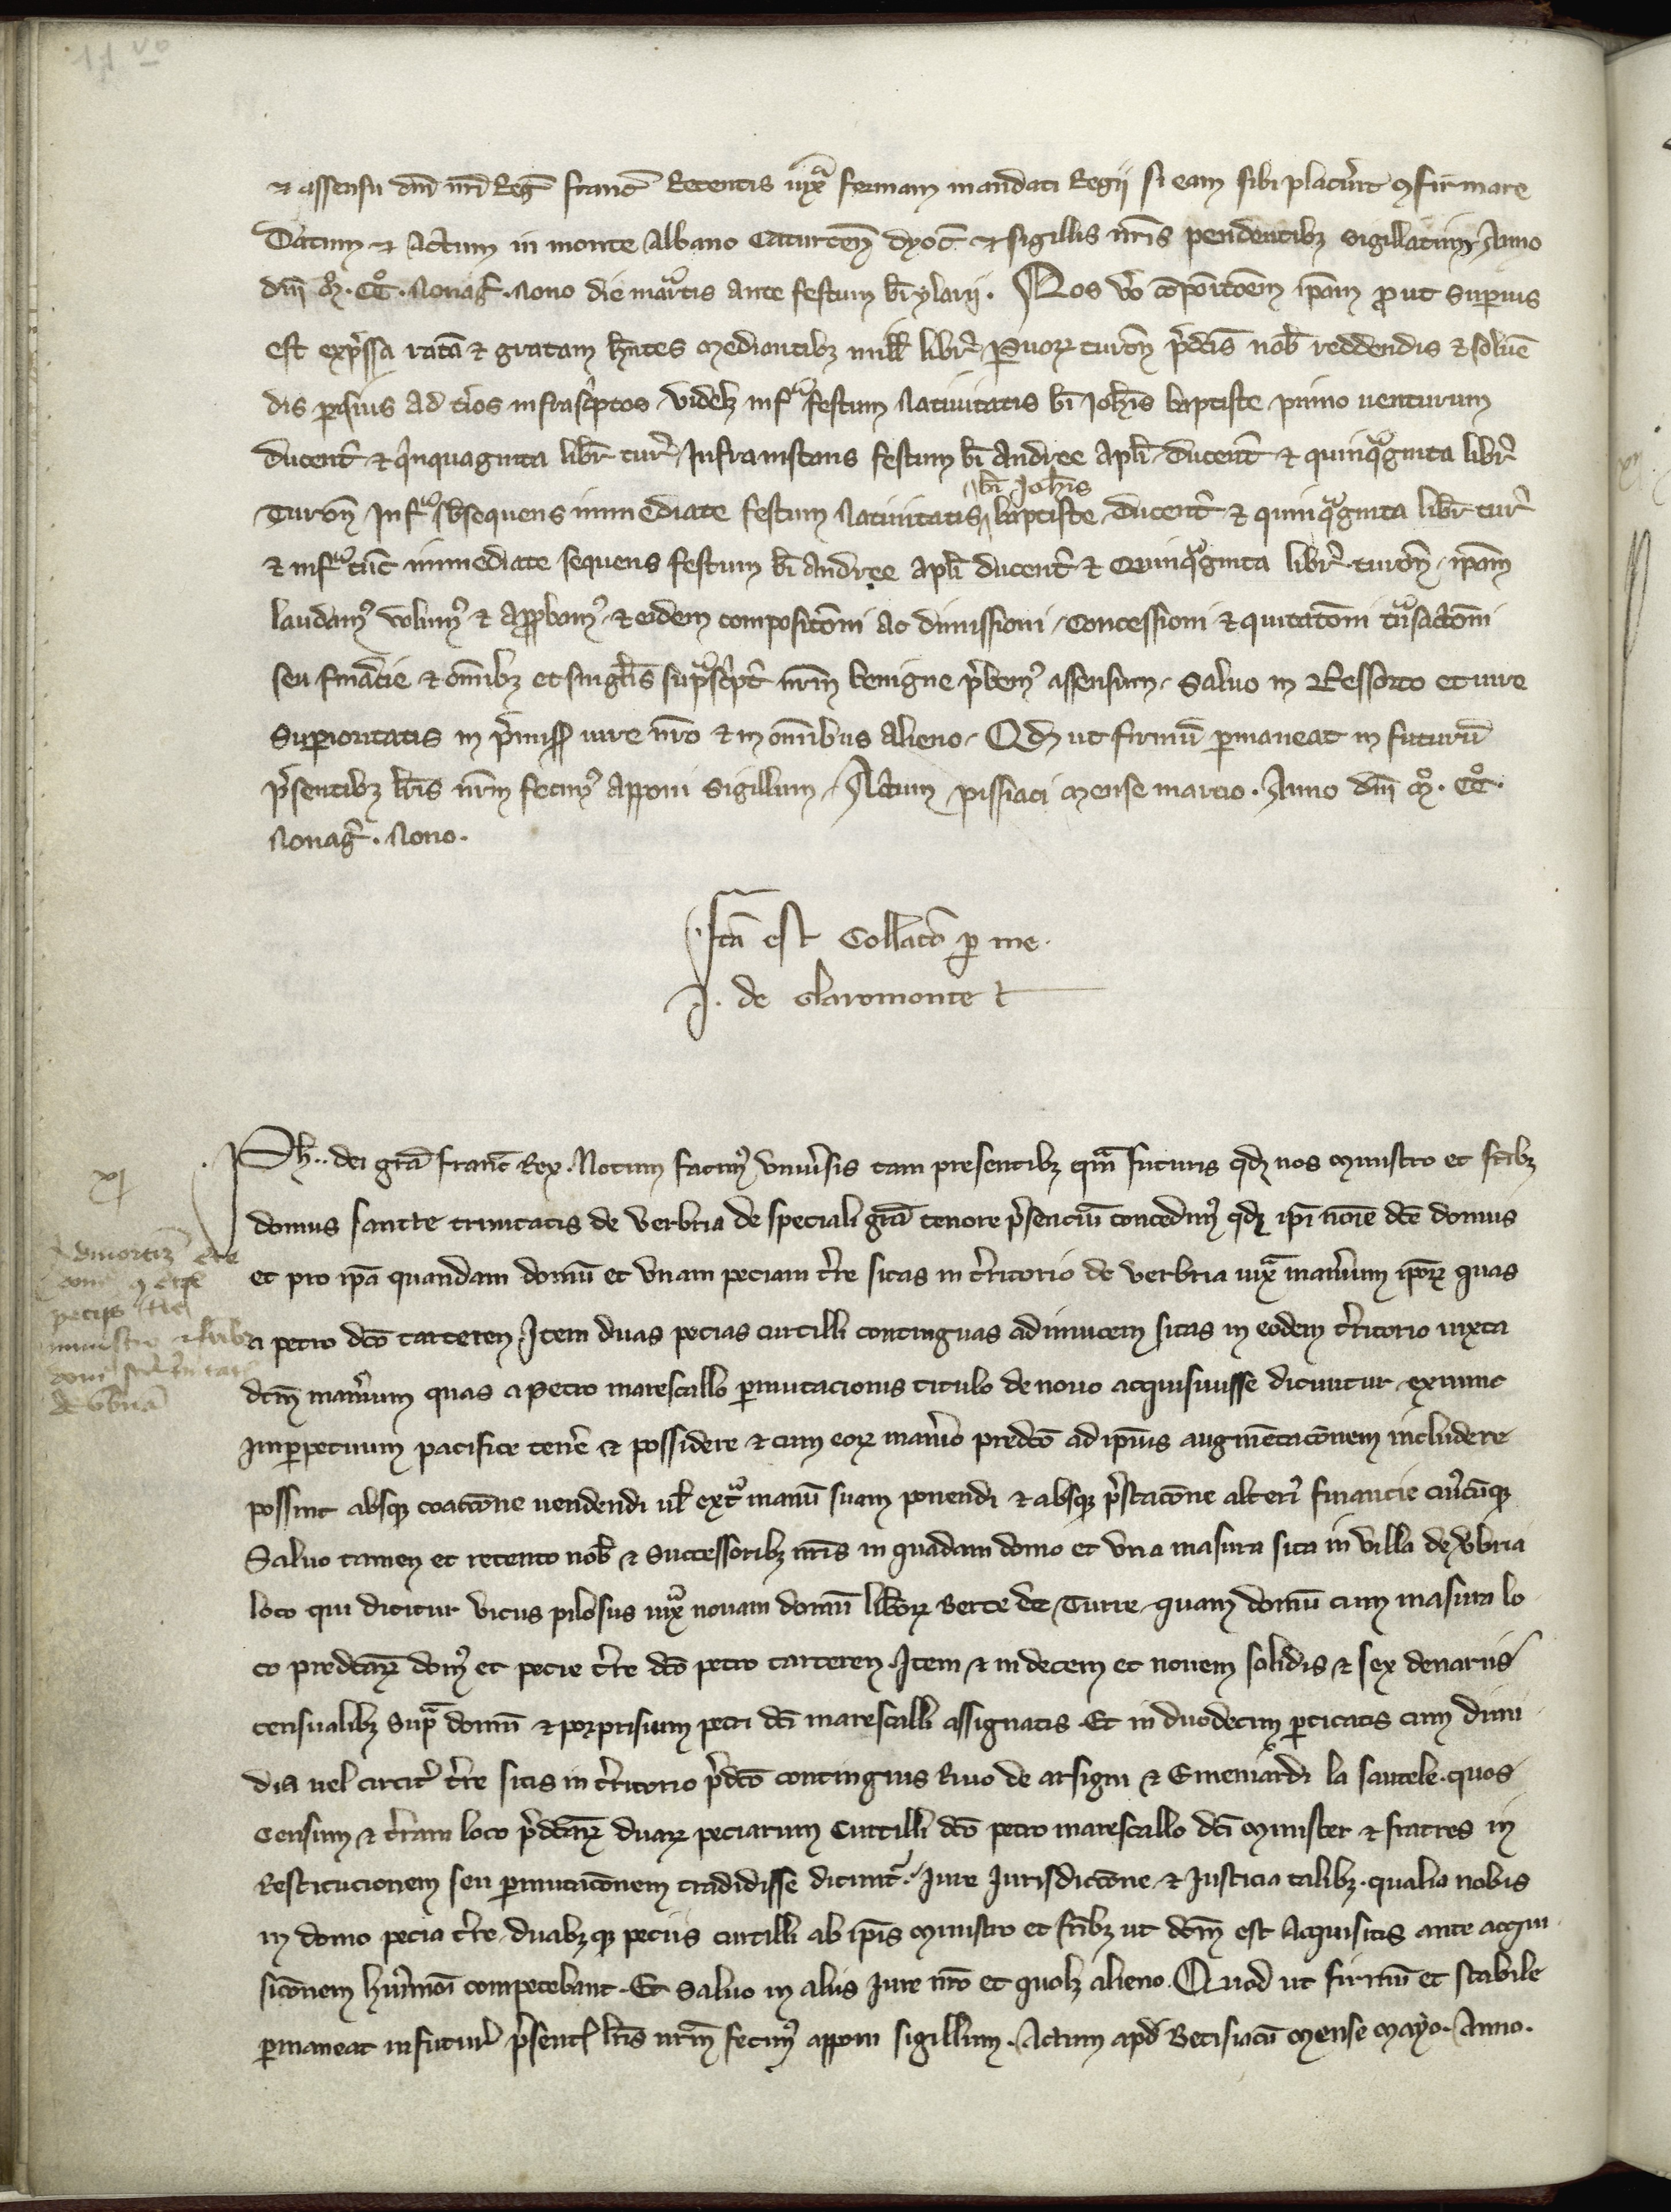 17 vo
⁊ assensu dñi nr̃i Reg̃ franc̃ Retentis iuxᵃ formam mandati Regij si eam sibi placuit ꝯfirmare
Datum ⁊ Actum in monte Albano Caturceñ dyoc̃ ⁊ sigillis nr̃is pendentibꝫ sigillatum Anno
dñi mͦ. ccͦ. Nonag̃. Nono die martis ante festum bi ylarij. Nos vo c̃poitõem ip̃am prout superius
est exp̃ssa ratã ⁊ gratam hñtes mediantibꝫ mill̃ libr̃ paruoꝝ turoñ p̃dc̃is nob̃ reddendis ⁊ soluẽ
dis prius ad t̃ios infrasc̃ptos videlꝫ infᵃ festum natiuitatis bi Joh̃is baptiste primo uenturum
ducent̃ ⁊ q̃nquaginta libr̃ tur̃ Infra instans festum bi Andree apl̃i Ducent̃ ⁊ quinqᵃginta libr̃
bi Joh̃is
Turoñ Infᵃ sb̃sequens immediate festum natiuitatis baptiste ducent̃ ⁊ quinqᵃginta libr̃ tur̃
⁊ infᵃ tũc immediate sequens festum bi Andree apl̃i ducent̃ ⁊ Quinqᵃginta libr̃ turoñ ip̃am
laudamꝰ volumꝰ ⁊ app̃bamꝰ ⁊ eidem compositõni ac dimissioni concessioni ⁊ quitatõni tᵃnsactõni
seu finãcie ⁊ oñibꝫ et singlis̃ supᵃsc̃pt̃ nr̃m benigne p̃bemꝰ assensum Saluo in Ressorto et iure
Superioritatis in p̃miss̃ iure nr̃o ⁊ in omñibus alieno Qđ ut firmũ permaneat in futurũ
p̃sentibꝫ lr̃is nr̃m fecimꝰ apponi sigillum Actum pissiaci mense marcio. Anno dñi mͦ. ccͦ.
Nonag̃. Nono.
Ita est Collatõ ꝑ me
J. de claromonte
xj
Ph̃.. dei gr̃a franc̃ Rex. Notum facimꝰ vniũsis tam presentibꝫ qᵐ futuris qđ nos ministro et fr̃ibꝫ
domus sancte trinitatis de verbria de speciali gr̃a tenore p̃senciũ concedimꝰ qđ ip̃i noĩe dc̃e domus
et pro ip̃a quandam domũ et vnam peciam tr̃re sitas in tr̃ritorio de verbria iuxᵃ man̾ium ip̃oꝝ quas
a petro dc̃o carteren Item duas pecias curtilli contiguas adinuicem sitas in eodem tr̃ritorio iuxta
dc̃m man̾ium quas a petro marescallo ꝑmutacionis titulo de nouo acquisiuisse dicuntur exnunc
imperpetuum pacifice ten̾e ⁊ possidere ⁊ cum eoꝝ man̾io predc̃o ad ip̃ius augmẽtacõnem includere
possint absqꝫ coaccõne uendendi ul̃ extᵃ manũ suam ponendi ⁊ absqꝫ p̃stacõne alteri̾ financie cuiuscũqꝫ
Saluo tamen et retento nob̃ ⁊ Successoribꝫ nr̃is in quadam domo et vna masura sita in villa de v̾bria
loco qui dicitur vicus pilosus iuxᵃ nouam domũ lib̾oꝝ Berte de Turre quam domũ cum masura lo
co predc̃aꝝ domꝰ et pecie tr̃re dc̃o petro carteren Item ⁊ in decem et nouem solidis ⁊ sex denariis
censualibꝫ supᵃ domũ ⁊ porprisium petri dc̃i marescalli assignatis Et in duodecim perticatis cum dimi
dia uel circit̾ tr̃re sitis in tr̃ritorio p̃dc̃o contiguis Riuo de arsigni ⁊ Emeniardi la sautele quos
Censum ⁊ tr̃ram loco p̃dc̃aꝝ duaꝝ peciarum Curtilli dc̃o petro marescallo dc̃i minister ⁊ fratres in
Restitucionem seu ꝑmutacõnem tradidisse dicunt̃. Iure Iurisdiccõne ⁊ Iusticia talibꝫ qualia nobis
in domo pecia tr̃re duabꝫqꝫ peciis curtilli ab ip̃is ministro et fr̃ibꝫ ut dc̃m est acquisitis ante acqui
sicõnem hui̾moi competebant. Et Saluo in aliis Iure nr̃o et quolꝫ alieno. Quod ut firmũ et stabile
ꝑmaneat in futur̃ p̃sent̃ lr̃is nr̃m fecimꝰ apponi sigillum. Actum apđ Betisiacũ mense mayo. Anno.